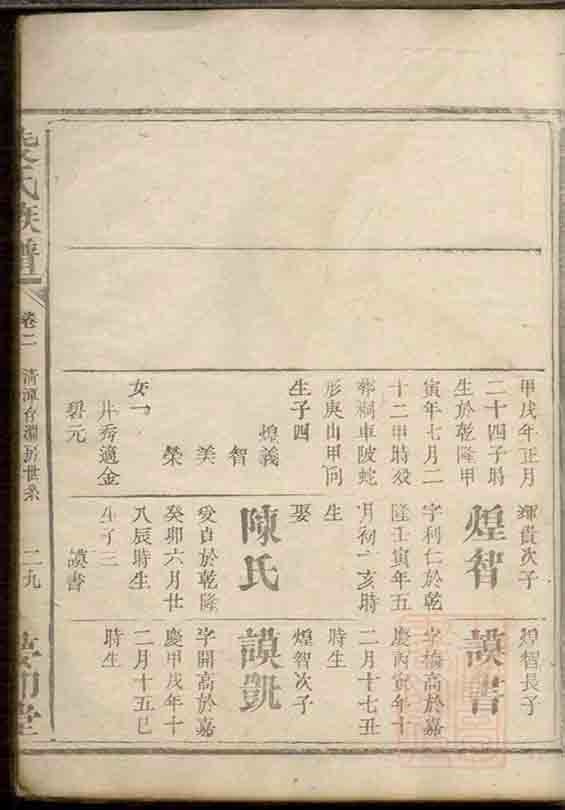 甲戌年正月
二十四子時
生於乾隆甲
寅年七月二
十二甲時歿
葬桐車陂蛇
形庚山甲向
生子四
煌義
智
美
榮
女一
井秀適金
碧元
輝貴次子
煌智
字利仁於乾
隆壬寅年五
月初一亥時
生
娶
陳氏
癸卯六月廿
八辰時生
生子三
謨書
煌智長子
謨書
字榆高於嘉
慶丙寅年十
二月十七丑
時生
煌智次子
謨凱
字開高於嘉
慶甲戌年十
二月十五巳
時生
氏族譜
卷二
二九